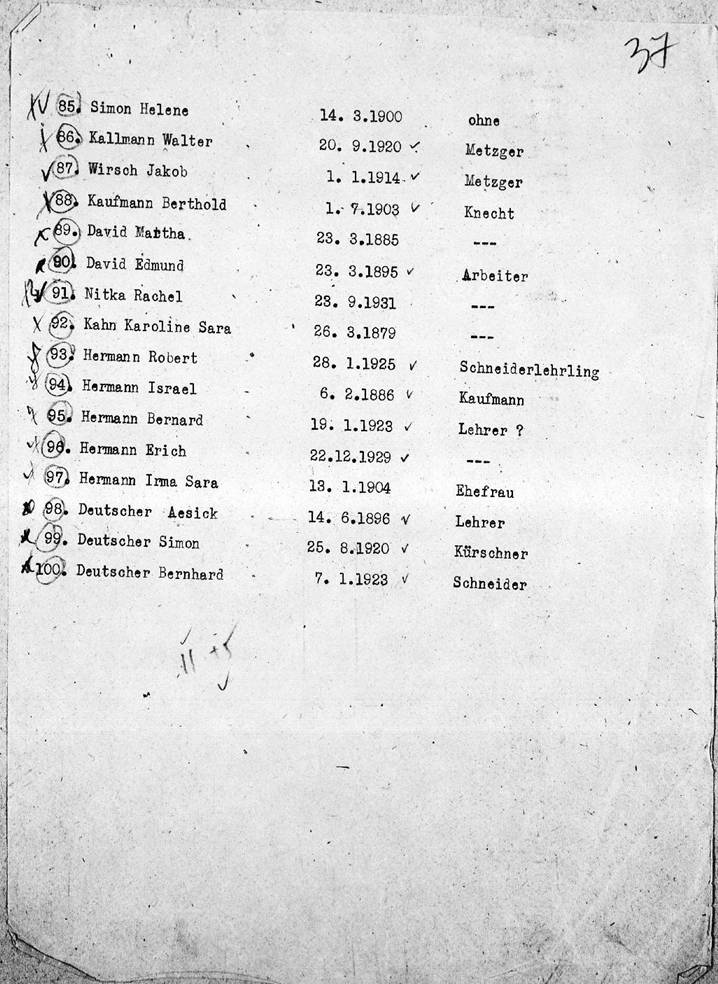 37
85. Simon Helene 14. 3.1900 ohne
86. Kallmann Walter 20. 9.1920 ✓ Metzger
87. Wirsch Jakob 1. 1.1914 ✓ Metzger
88. Kaufmann Berthold 1. 7.1903 ✓ Knecht
89. David Martha 23. 3.1885 ---
90. David Edmund 23. 3.1895 ✓ Arbeiter
91. Nitka Rachel 23. 9.1931 ---
92. Kahn Karoline Sara 26. 3.1879 ---
93. Hermann Robert 28. 1.1925 ✓ Schneiderlehrling
94. Hermann Israel 6. 2.1886 ✓ Kaufmann
95. Hermann Bernard 19. 1.1923 ✓ Lehrer ?
96. Hermann Erich 22.12.1929 ✓ ---
97. Hermann Irma Sara 13. 1.1904 Ehefrau
98. Deutscher Aesick 14. 6.1896 ✓ Lehrer
99. Deutscher Simon 25. 8.1920 ✓ Kürschner
100. Deutscher Bernhard 7. 1.1923 ✓ Schneider